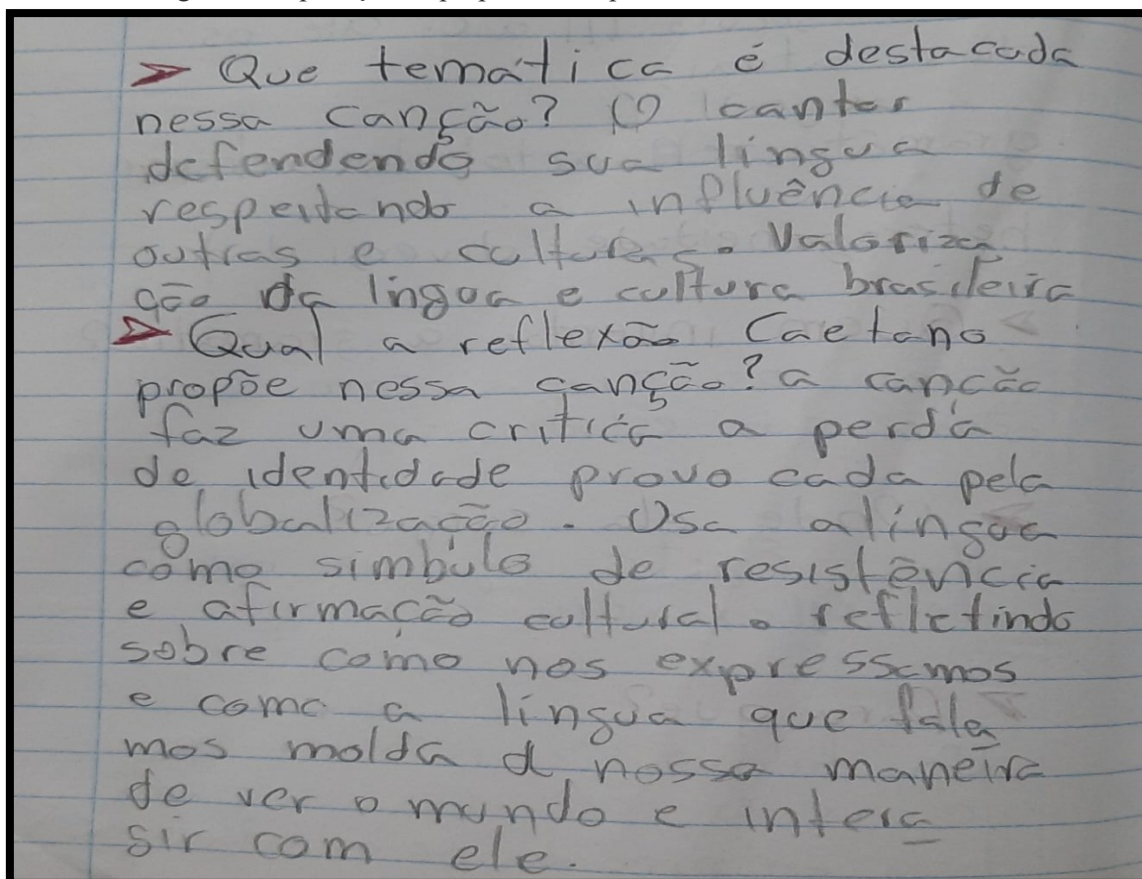 ➤ Que temática é destacada
nessa canção? O canter
defendendo sua lingua
respeitando a influência de
outras e culturas. Valoriza
ção da lingoa e cultura brasileira
➤ Qual a reflexão Caetano
propõe nessa canção? a cancão
faz uma critica a perda
de identidade provo cada pela
globalização. Usa alingoa
como simbulo de resistência
e afirmação cultural. refletindo
sobre como nos expressamos
e como a lingua que fala
mos molda a nossa maneira
de ver o mundo e intera
gir com ele.